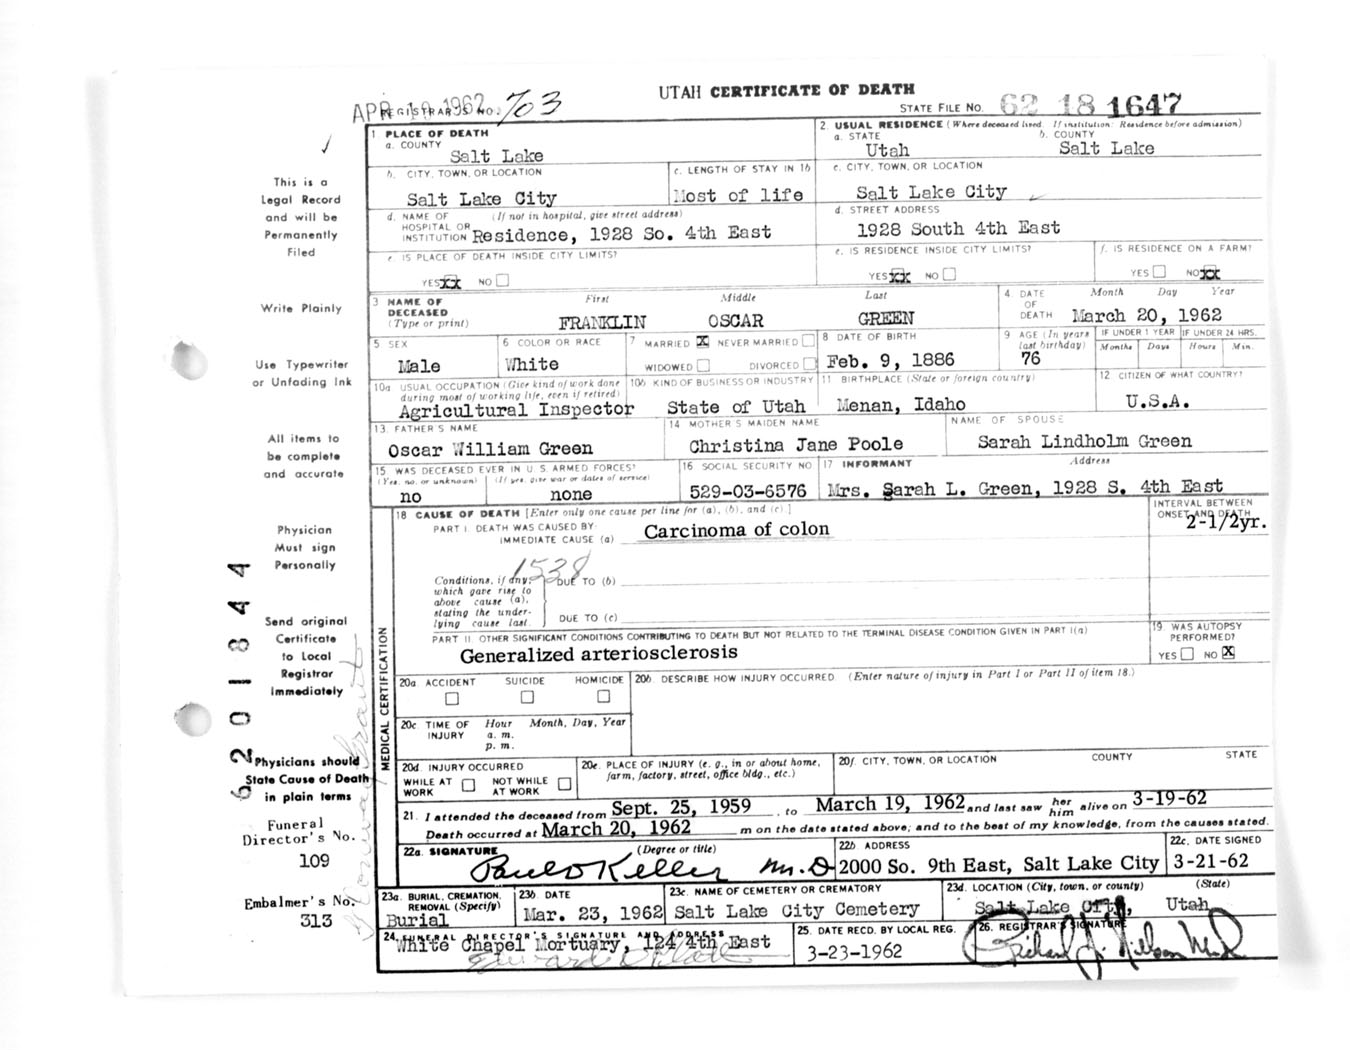 UTAH CERTIFICATE OF DEATH
APR 19 1962
REGISTRAR'S NO. 703
STATE FILE NO. 62 18 1647
1 PLACE OF DEATH
a. COUNTY
Salt Lake
2. USUAL RESIDENCE (Where deceased lived. If institution: Residence before admission)
a. STATE
Utah
b. COUNTY
Salt Lake
b. CITY, TOWN, OR LOCATION
Salt Lake City
c. LENGTH OF STAY IN 1b
Most of life
c. CITY, TOWN, OR LOCATION
Salt Lake City
d. NAME OF HOSPITAL OR INSTITUTION (If not in hospital, give street address)
Residence, 1928 So. 4th East
d. STREET ADDRESS
1928 South 4th East
e. IS PLACE OF DEATH INSIDE CITY LIMITS?
YES xx NO
e. IS RESIDENCE INSIDE CITY LIMITS?
YES xx NO
f. IS RESIDENCE ON A FARM?
YES NO xx
3 NAME OF DECEASED (Type or print)
First Middle Last
FRANKLIN OSCAR GREEN
4. DATE OF DEATH
Month Day Year
March 20, 1962
5 SEX
Male
6 COLOR OR RACE
White
7 MARRIED X NEVER MARRIED
WIDOWED DIVORCED
8 DATE OF BIRTH
Feb. 9, 1886
9 AGE (In years last birthday)
76
IF UNDER 1 YEAR
Months Days
IF UNDER 24 HRS.
Hours Min.
10a USUAL OCCUPATION (Give kind of work done during most of working life, even if retired)
Agricultural Inspector
10b KIND OF BUSINESS OR INDUSTRY
State of Utah
11 BIRTHPLACE (State or foreign country)
Menan, Idaho
12 CITIZEN OF WHAT COUNTRY?
U.S.A.
13. FATHER'S NAME
Oscar William Green
14 MOTHER'S MAIDEN NAME
Christina Jane Poole
NAME OF SPOUSE
Sarah Lindholm Green
15 WAS DECEASED EVER IN U. S. ARMED FORCES?
(Yes, no, or unknown) (If yes, give war or dates of service)
no none
16 SOCIAL SECURITY NO
529-03-6576
17 INFORMANT Address
Mrs. Sarah L. Green, 1928 S. 4th East
MEDICAL CERTIFICATION
18 CAUSE OF DEATH [Enter only one cause per line for (a), (b), and (c).]
PART I. DEATH WAS CAUSED BY:
IMMEDIATE CAUSE (a) Carcinoma of colon
INTERVAL BETWEEN ONSET AND DEATH
2-1/2yr.
1538
Conditions, if any, which gave rise to above cause (a), stating the under-lying cause last.
DUE TO (b)
DUE TO (c)
PART II. OTHER SIGNIFICANT CONDITIONS CONTRIBUTING TO DEATH BUT NOT RELATED TO THE TERMINAL DISEASE CONDITION GIVEN IN PART I(a)
Generalized arteriosclerosis
19. WAS AUTOPSY PERFORMED?
YES NO X
20a. ACCIDENT SUICIDE HOMICIDE
20b. DESCRIBE HOW INJURY OCCURRED (Enter nature of injury in Part I or Part II of item 18.)
20c. TIME OF INJURY
Hour Month, Day, Year
a. m.
p. m.
20d. INJURY OCCURRED
WHILE AT WORK NOT WHILE AT WORK
20e. PLACE OF INJURY (e. g., in or about home, farm, factory, street, office bldg., etc.)
20f. CITY, TOWN, OR LOCATION COUNTY STATE
21. I attended the deceased from Sept. 25, 1959, to March 19, 1962 and last saw her him alive on 3-19-62
Death occurred at March 20, 1962 m on the date stated above; and to the best of my knowledge, from the causes stated.
22a. SIGNATURE (Degree or title)
Paul O Keller M.D
22b ADDRESS
2000 So. 9th East, Salt Lake City
22c. DATE SIGNED
3-21-62
23a. BURIAL, CREMATION, REMOVAL (Specify)
Burial
23b. DATE
Mar. 23, 1962
23c. NAME OF CEMETERY OR CREMATORY
Salt Lake City Cemetery
23d. LOCATION (City, town, or county) (State)
Salt Lake City, Utah
24. FUNERAL DIRECTOR'S SIGNATURE AND ADDRESS
White Chapel Mortuary, 124 4th East
25. DATE RECD. BY LOCAL REG.
3-23-1962
26. REGISTRAR'S SIGNATURE
This is a
Legal Record
and will be
Permanently
Filed
Write Plainly
Use Typewriter
or Unfading Ink
All items to
be complete
and accurate
Physician
Must sign
Personally
Send original
Certificate
to Local
Registrar
Immediately
Physicians should
State Cause of Death
in plain terms
Funeral
Director's No.
109
Embalmer's No.
313
6201844